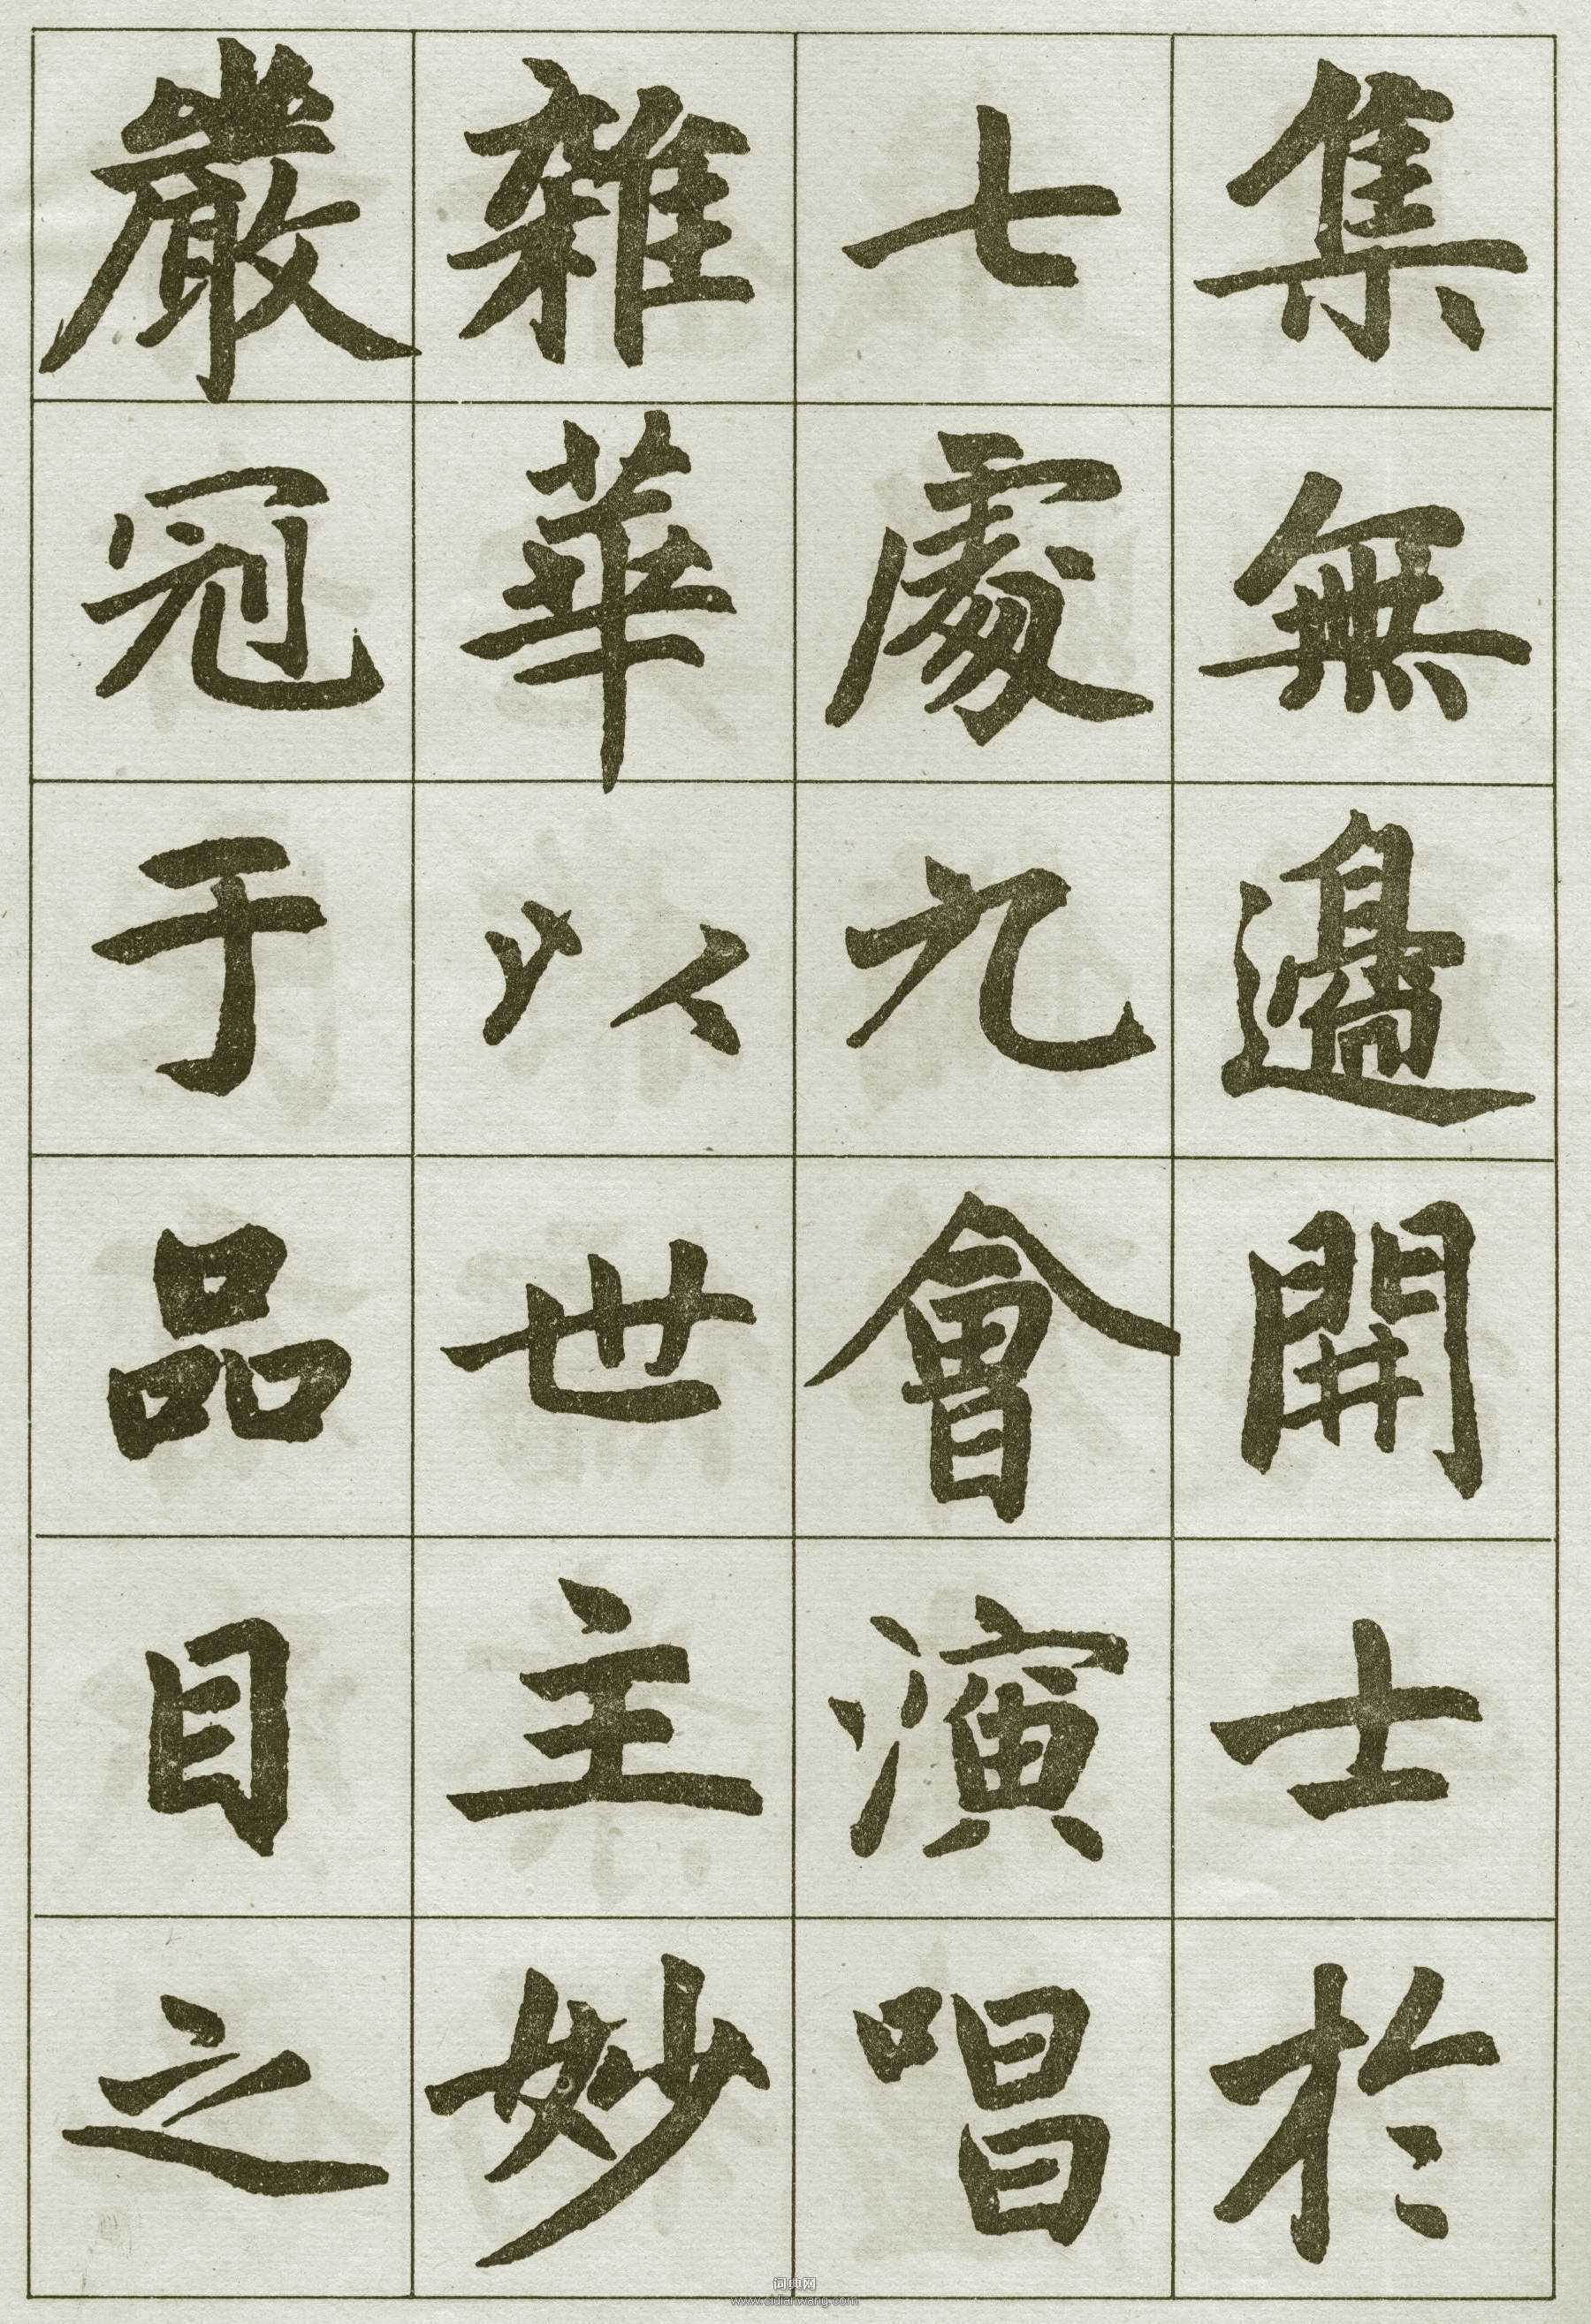 集無邊開士於
七處九會演唱
雜華以世主妙
嚴冠于品目之
词典网
www.cidianwang.com